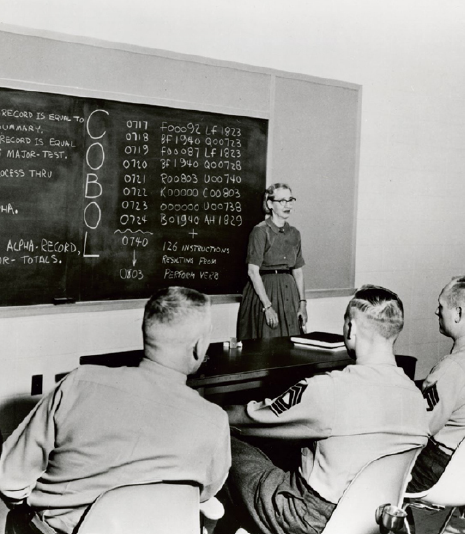 RECORD IS EQUAL TO
SUMMARY.
RECORD IS EQUAL
MAJOR-TEST.
PROCESS THRU
ALPHA.
ALPHA-RECORD,
TOTALS.
COBOL
0717 F00092 LF1823
0718 BF1940 Q00723
0719 F00087 LF1823
0720 BF1940 Q00728
0721 R00803 U00740
0722 K00000 C00803
0723 000000 U00738
0724 B01940 AH1829
+
0740 126 INSTRUCTIONS
RESULTING FROM
0803 PERFORM VERB